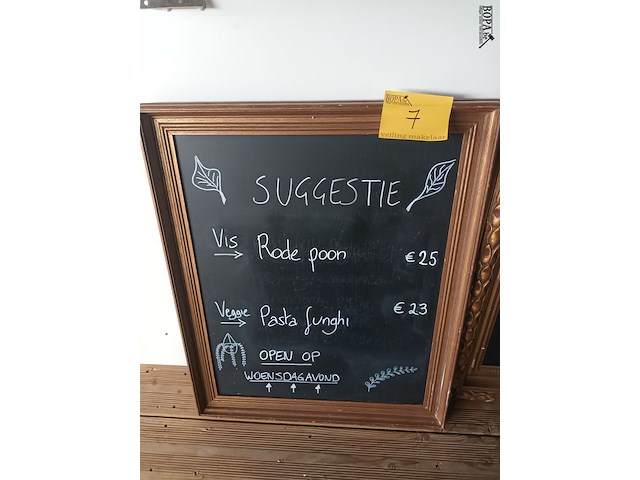 BOPA
BOPA
7
veiling makelaar
SUGGESTIE
Vis
Rode poon €25
Veggie
Pasta funghi €23
OPEN OP
WOENSDAGAVOND